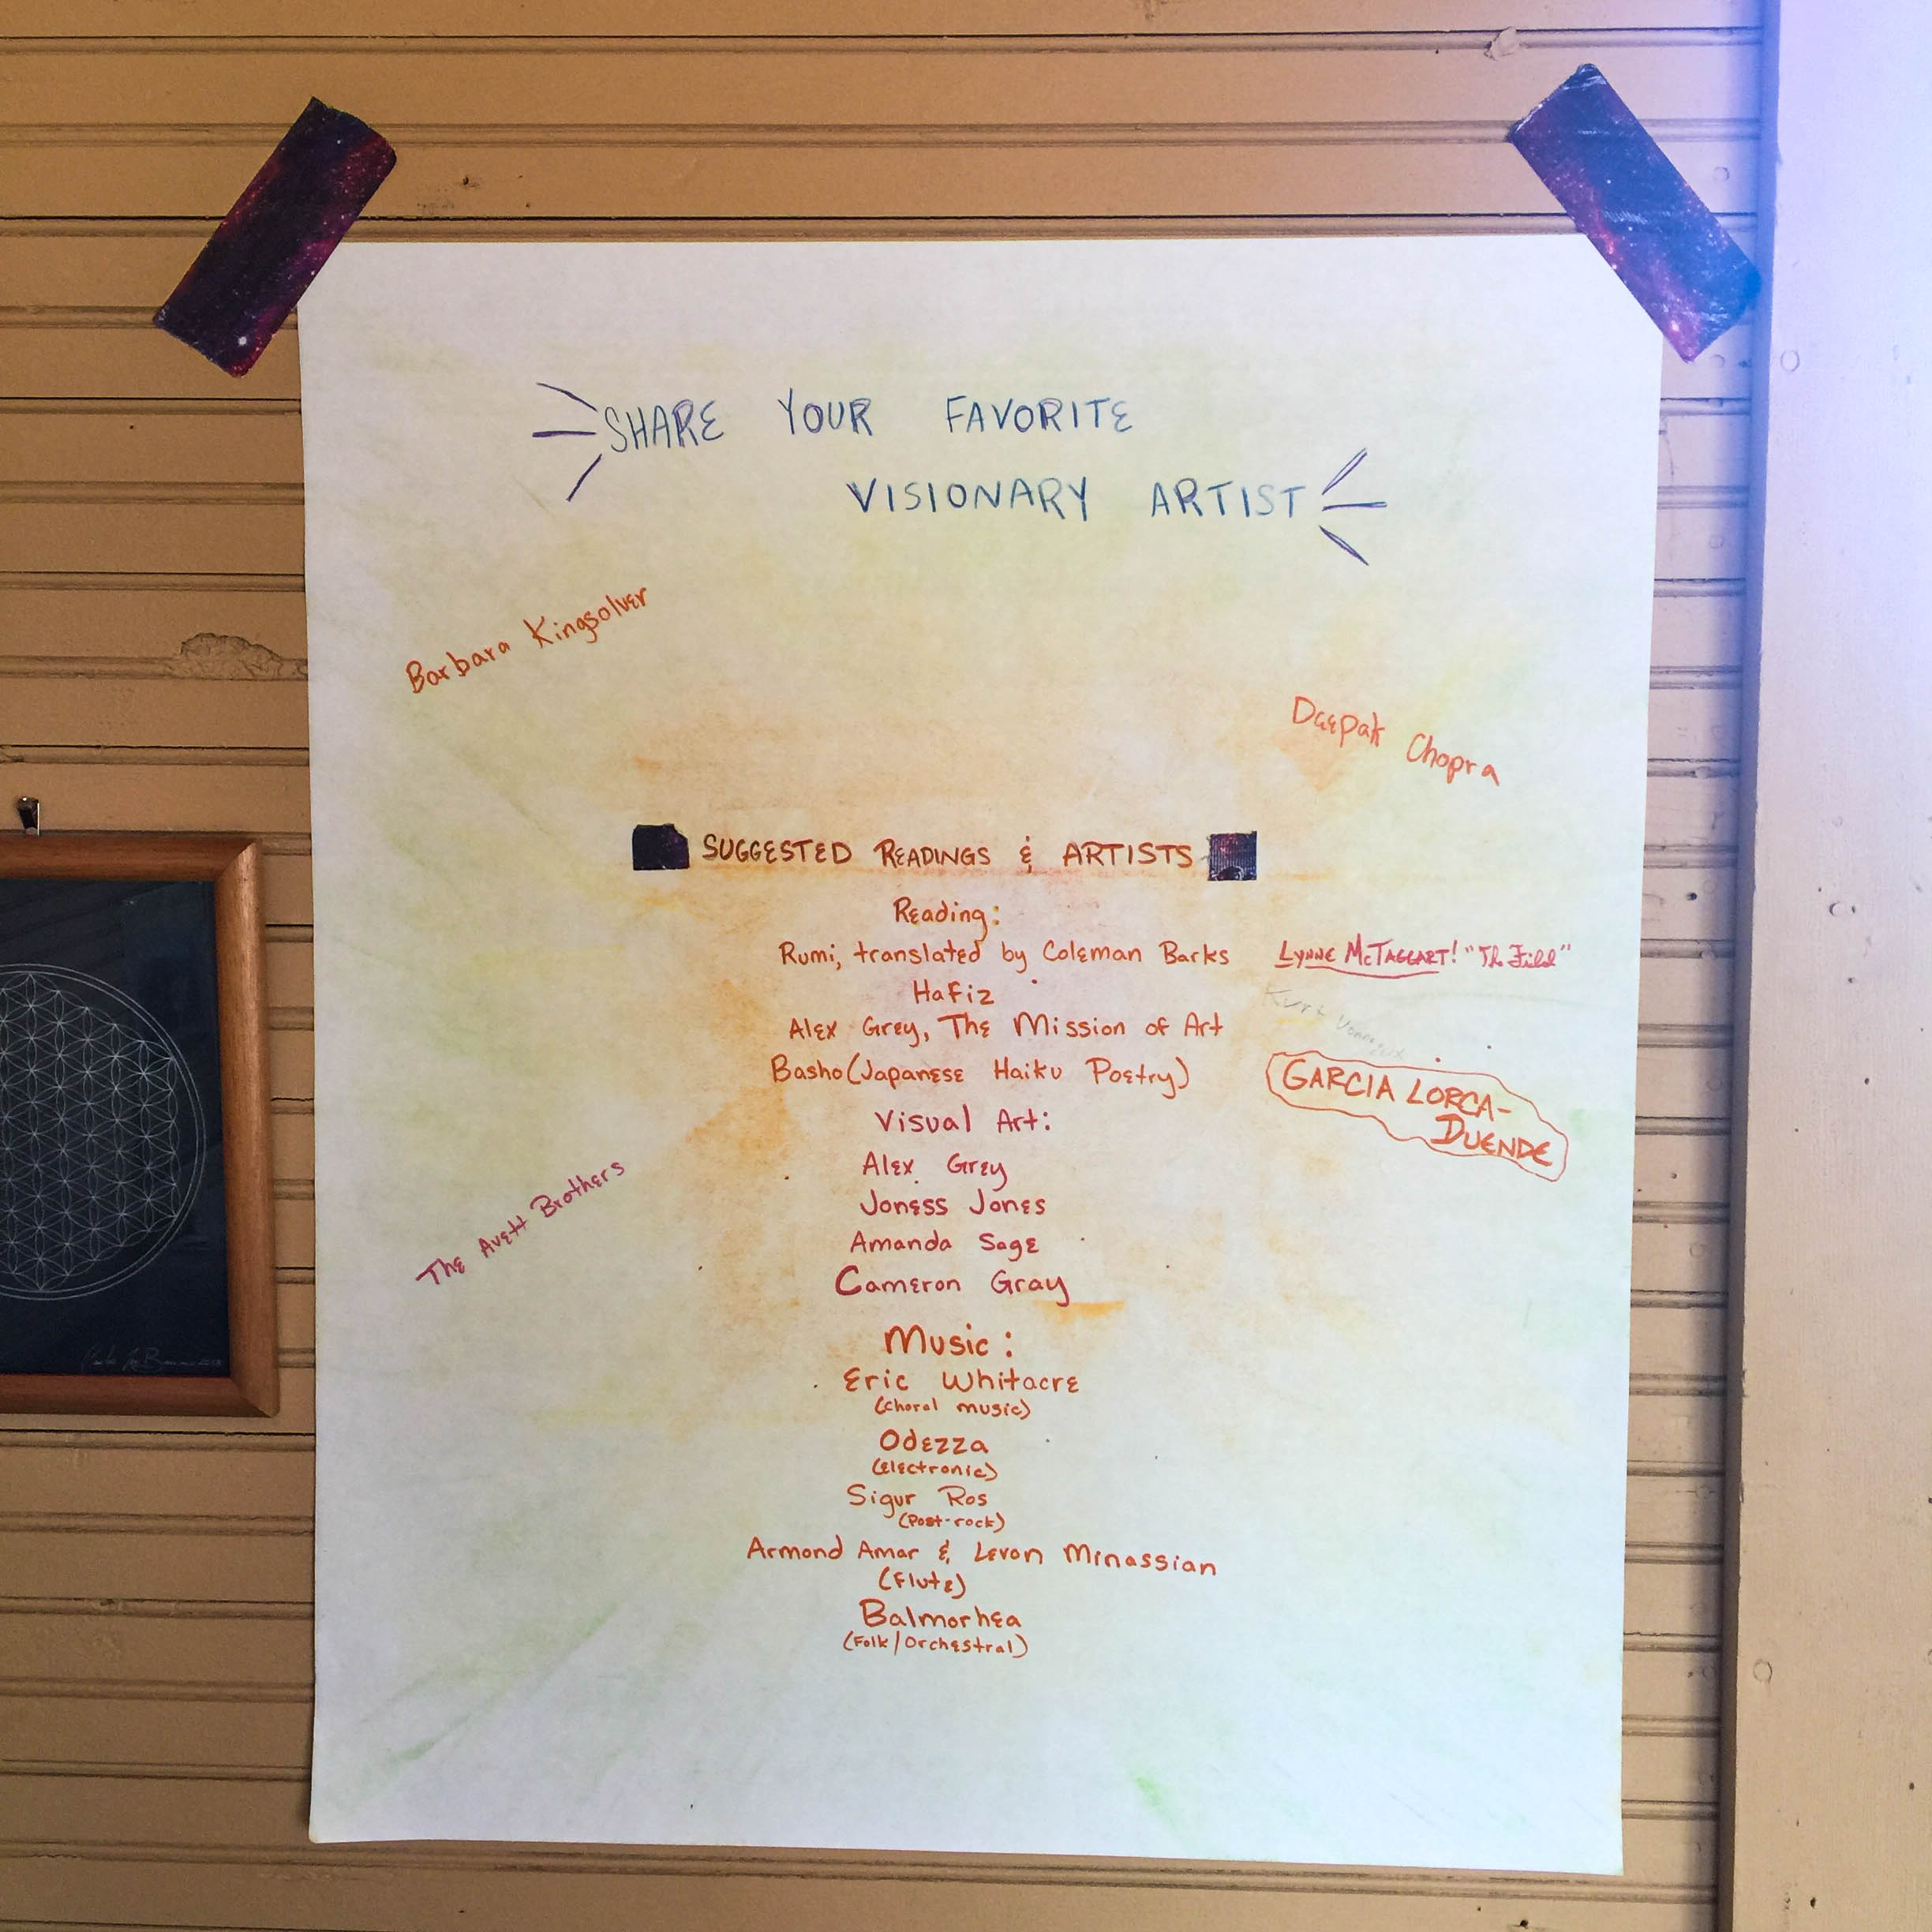 SHARE YOUR FAVORITE
VISIONARY ARTIST
Barbara Kingsolver
Deepak Chopra
SUGGESTED READINGS & ARTISTS
Reading:
Rumi, translated by Coleman Barks
LYNNE McTAGGART! "The Field"
Hafiz
Kurt Vonnegut
Alex Grey, The Mission of Art
Basho (Japanese Haiku Poetry)
GARCIA LORCA-
DUENDE
Visual Art:
Alex Grey
Joness Jones
The Avett Brothers
Amanda Sage
Cameron Gray
Music:
Eric Whitacre
(choral music)
Odezza
(electronic)
Sigur Ros
(Post-rock)
Armond Amar & Levon Minassian
(Flute)
Balmorhea
(Folk/Orchestral)